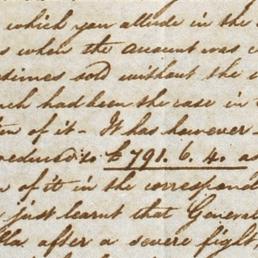 which you allude in the
when the account was
sold without the
had been the case in
of it - It has however
reduced to £791.6.4. as
of it in the correspond
just learnt that General
after a severe fight,